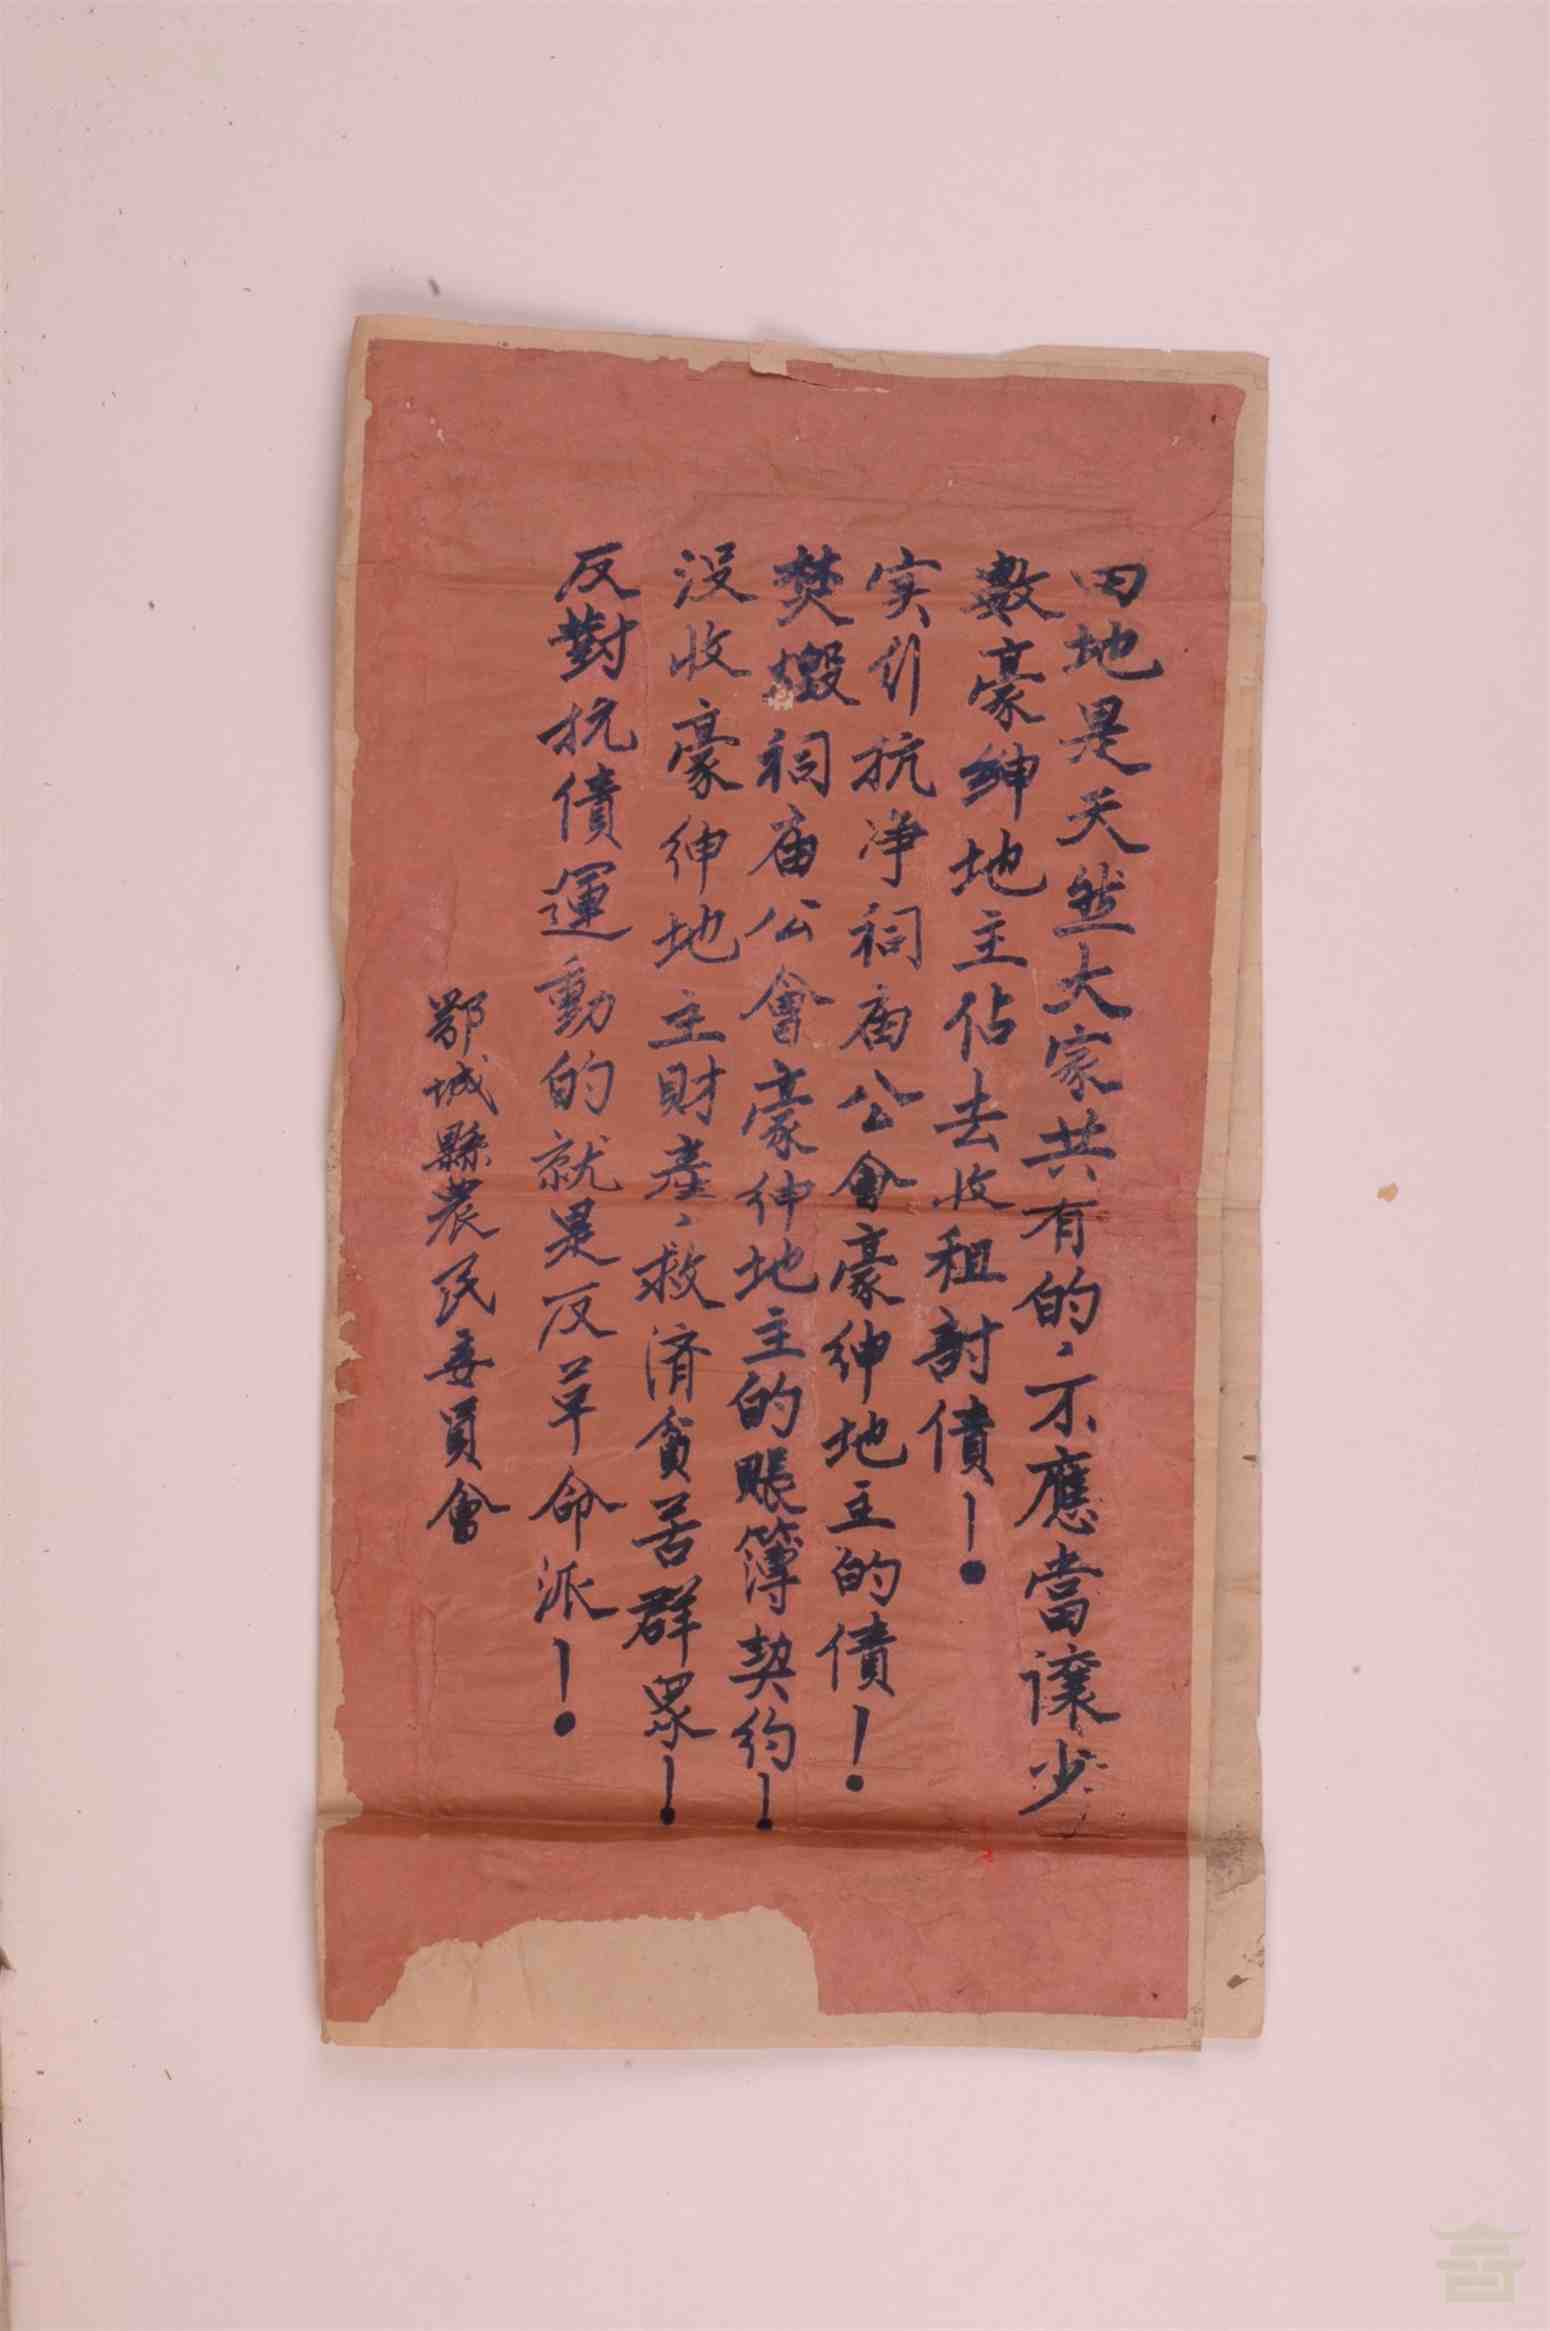 田地是天然大家共有的，不應當讓少
數豪紳地主佔去收租討債！
实行抗净祠庙公會豪紳地主的債！
焚燬祠庙公會豪紳地主的賬簿契約！
没收豪紳地主財產，救濟貧苦群眾！
反對抗債運動的就是反革命派！
鄂城縣農民委員會